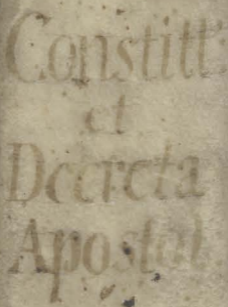 Constitt
et
Decreta
Apostol